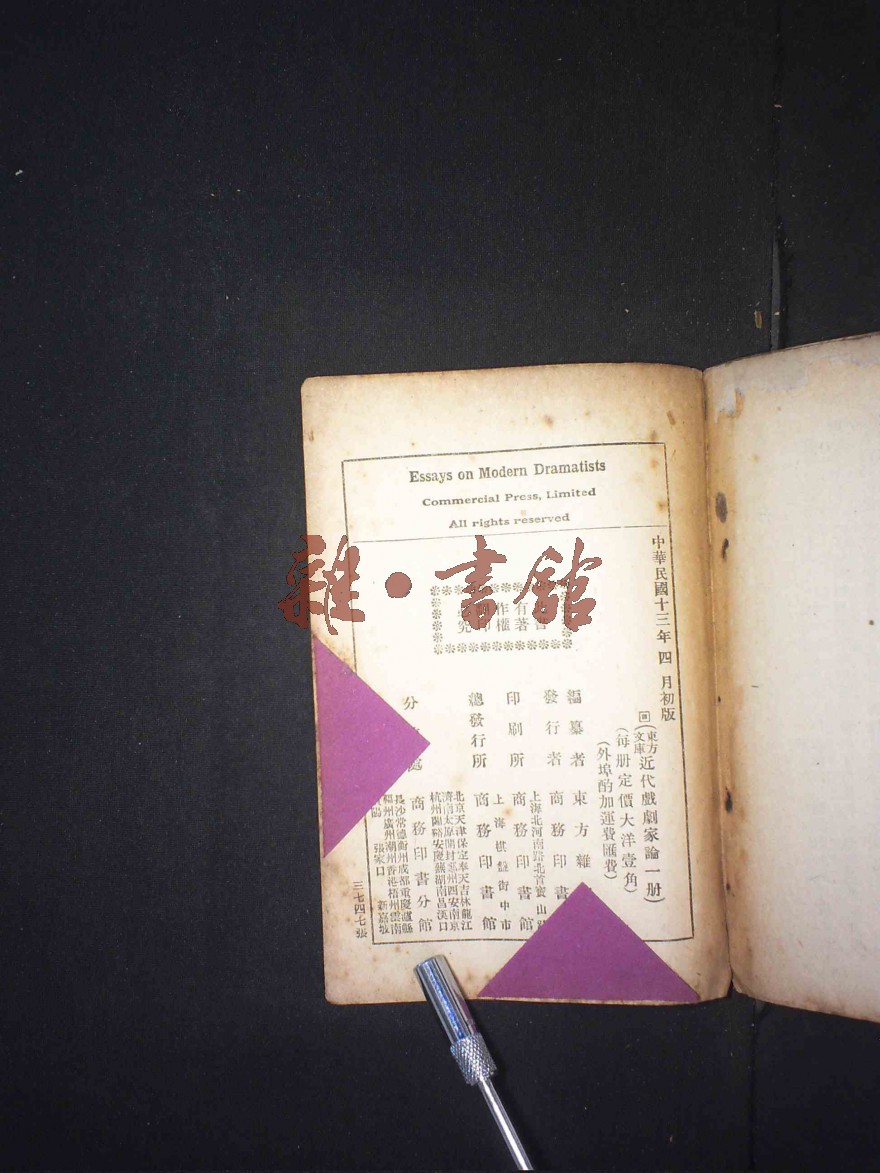 Essays on Modern Dramatists
Commercial Press, Limited
All rights reserved
中華民國十三年四月初版
回(東方文庫)近代戲劇家論一册)
(每册定價大洋壹角)
(外埠酌加運費匯費)
有著
作權
編纂者 東方雜
發行者 商務印書
上海北河南路北首寶山
印刷所 商務印書館
上海棋盤街中市
總發行所 商務印書館
北京天津保定奉天吉林龍江
濟南太原開封鄭州西安南京
杭州蘭谿安慶蕪湖南昌漢口
分 商務印書分館
長沙常德衡州成都重慶瀘縣
福州廣州潮州香港梧州雲南
張家口 新嘉坡
三七四七張
雜·書館